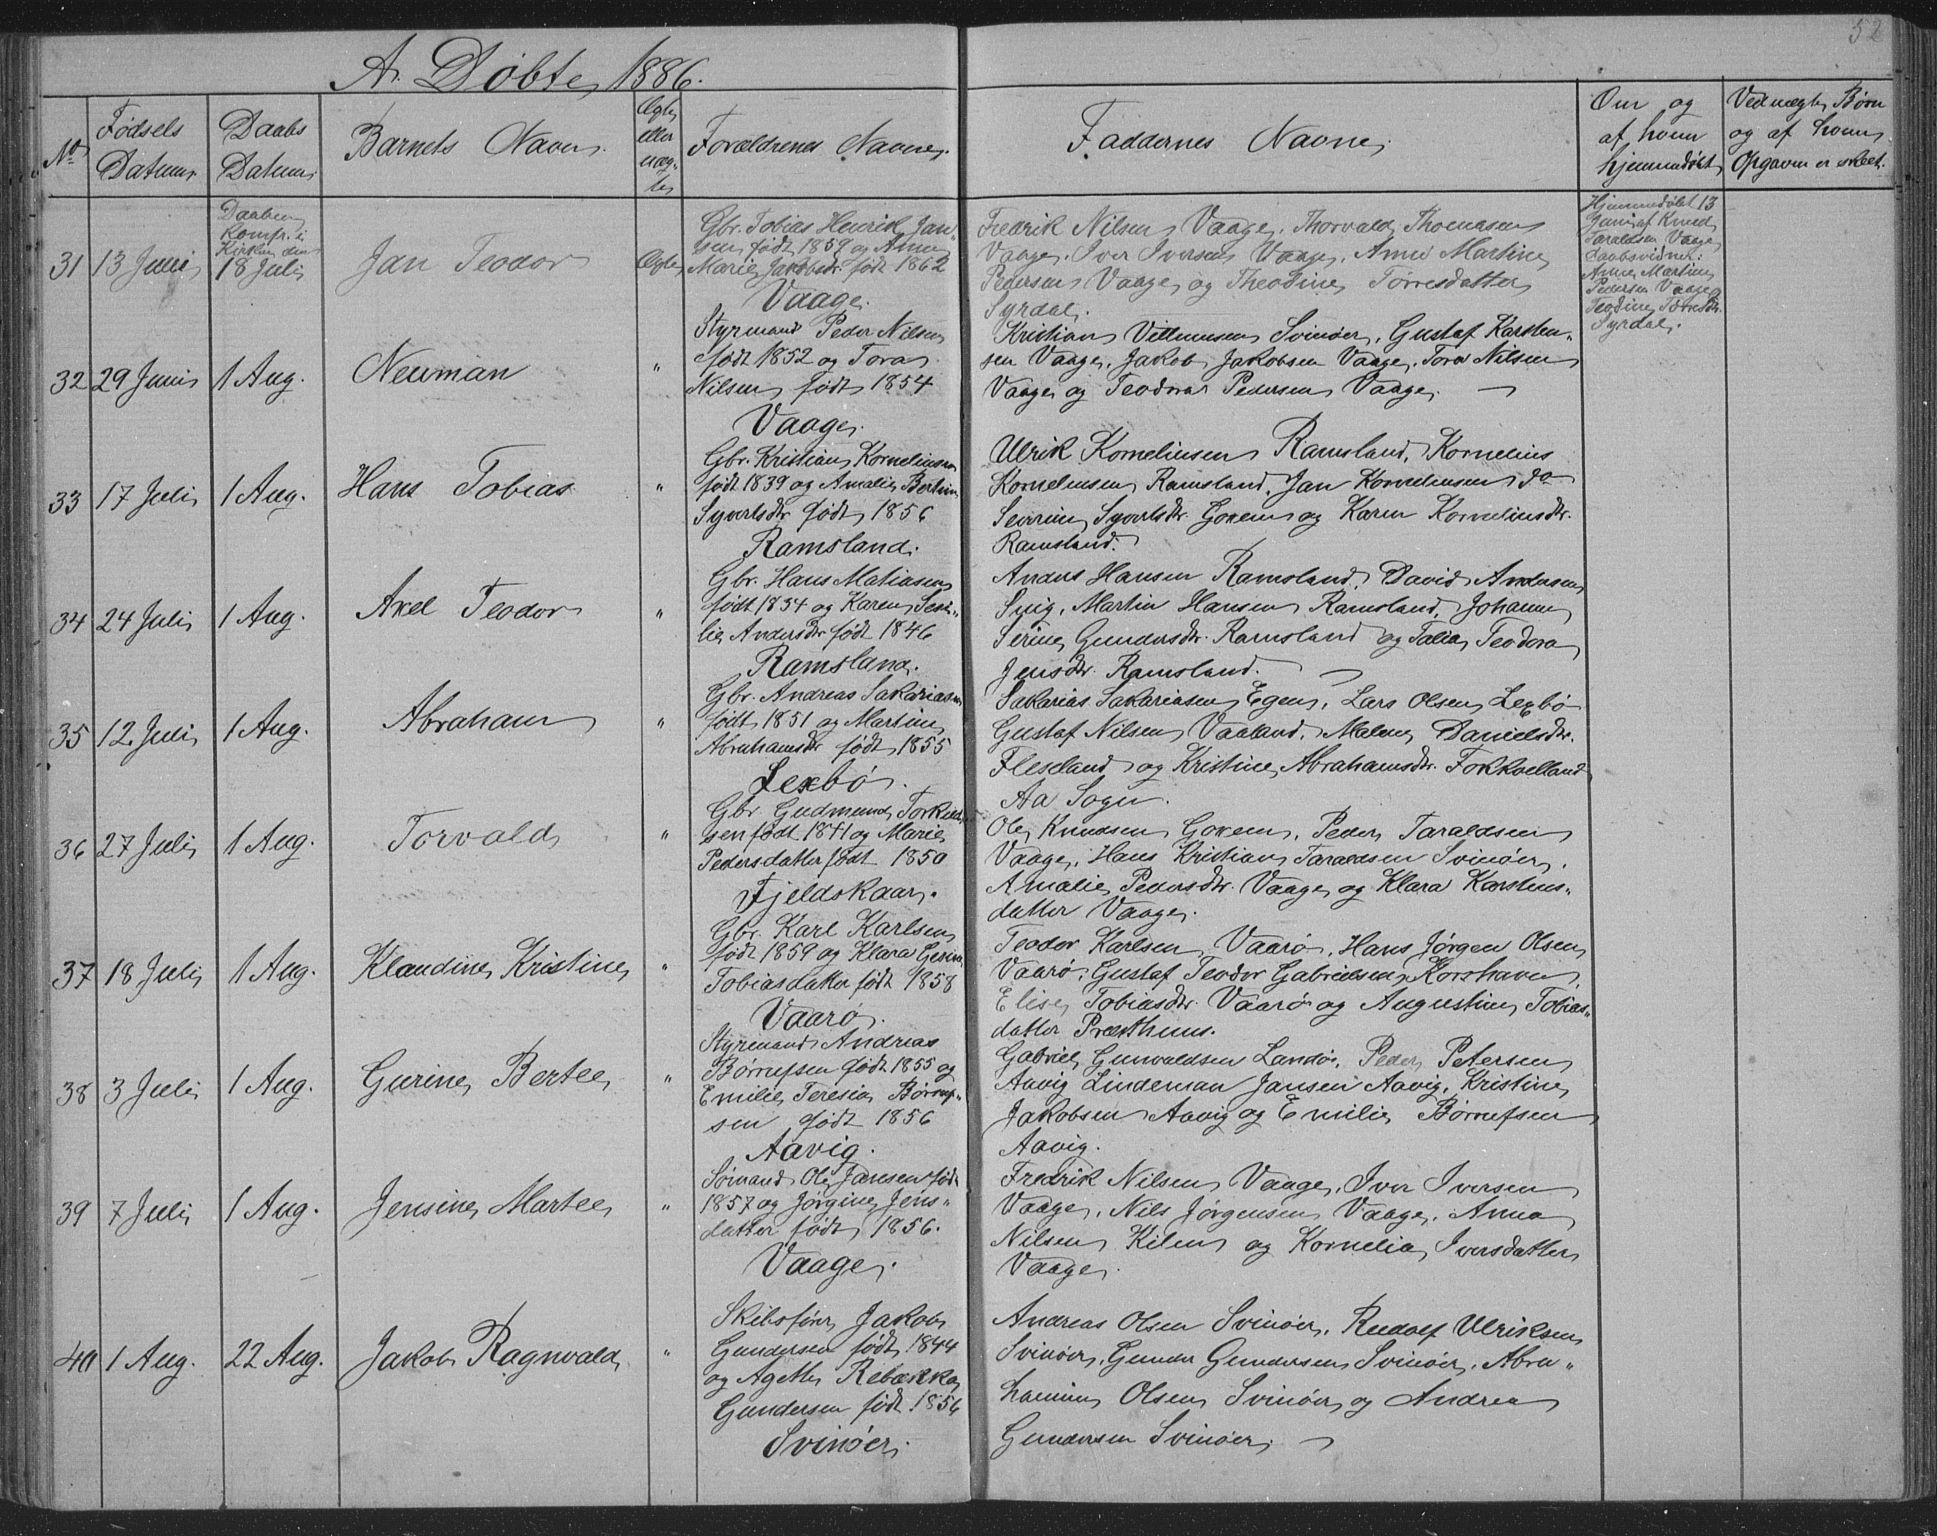 52
A. Døbte, 1886.
No
Fødsels Datum.
Daabs Datum.
Barnets Navn.
Ægte eller uægte
Forældrenes Navne.
Faddernes Navne.
Om og af hvem hjemmedøbt
Ved uægte Børn og af hvem Opgaven er skeet.
31
13 Juni
Daaben
Komfr. i
Kirken den
18 Juli
Jan Teodor
Ægte
Gbr. Tobias Henrik Jan-
sen født 1859 og Anne
Marie Jakobsdr. født 1862
Vaage.
Fredrik Nilsen Vaage, Thorvald Thomasen
Vaage, Iver Iversen Vaage, Anne Martine
Pedersen Vaage og Theodine Torresdatter
Syrdal.
Hjemmedøbt 13
Juni af Knud
Taraldsen Vaage
Daabsvidner:
Anne Martine
Pedersen Vaage og
Teodine Torresdr.
Syrdal.
32
29 Juni
1 Aug.
Neuman
"
Styrmand Peder Nilsen
født 1852 og Tora
Nilsen født 1854
Vaage.
Kristian Villumsen Svinøer, Gustaf Karsten-
sen Vaage, Jakob Jakobsen Vaage, Tora Nilsen
Vaage og Teodora Pedersen Vaage.
33
17 Juli
1 Aug.
Hans Tobias
"
Gbr. Kristian Korneliusen
født 1839 og Amalie Bertine
Syvertsdr. født 1856
Ramsland.
Ulrik Korneliusen Ramsland, Kornelius
Korneliusen Ramsland, Jan Korneliusen do
Severine Syvertsdr. Goxem og Karen Korneliusdr.
Ramsland.
34
24 Juli
1 Aug.
Axel Teodor
"
Gbr. Hans Matiasen
født 1854 og Karen Sesi-
lie Andersdr. født 1846
Ramsland.
Anders Hansen Ramsland, David Andersen
Spig, Martin Hansen Ramsland, Johanne
Serine Gundersdr. Ramsland og Talia Teodora
Jensdr. Ramsland.
35
12 Juli
1 Aug.
Abraham
"
Gbr. Andreas Sakariasen
født 1851 og Martine
Abrahamsdr. født 1855
Lexbø.
Sakarias Sakariasen Egen, Lars Olsen Lexbø
Gustaf Nilsen Vaaland, Malene Danielsdr.
Fleseland og Kristine Abrahamsdr. Fokkelland
Aa Sogn.
36
27 Juli
1 Aug.
Torvald
"
Gbr. Gudmund Torkild-
sen født 1841 og Marie
Pedersdatter født 1850
Fjeldskaar.
Ole Knudsen Goxem, Peder Taraldsen
Vaage, Hans Kristian Taraldsen Svinøer,
Amalie Pedersdr. Vaage og Klara Karstens-
datter Vaage.
37
18 Juli
1 Aug.
Klaudine Kristine
"
Gbr. Karl Karlsen
født 1859 og Klara Gesine
Tobiasdatter født 1858
Vaarø.
Teodor Karlsen Vaarø, Hans Jørgen Olsen
Vaarø, Gustaf Teodor Gabrielsen Korshavn,
Elise Tobiasdr. Vaarø og Augustine Tobias-
datter Præsthuus.
38
3 Juli
1 Aug.
Gurine Bertee
"
Styrmand Andreas
Børrufsen født 1855 og
Emilie Teresia Børruf-
sen født 1856
Aavig.
Gabriel Gunvaldsen Landøi, Peder Petersen
Aavig Lindeman Jansen Aavig, Kristine
Jakobsen Aavig og Emilie Børrufsen
Aavig.
39
7 Juli
1 Aug.
Jensine Martee
"
Sømand Ole Jansen født
1857 og Jørgine Jens-
datter født 1856.
Vaage.
Fredrik Nilsen Vaage, Iver Iversen
Vaage, Nils Jørgensen Vaage, Anna
Nilsen Kilen og Kornelia Iversdatter
Vaage.
40
1 Aug.
22 Aug.
Jakob Ragnvald
"
Skibsfører Jakob
Gundersen født 1844
og Agethe Rebækka
Gundersen født 1856
Svinøer.
Andreas Olsen Svinøer, Rudolf Ulriksen
Svinøer, Gunder Gundersen Svinøer, Abra-
hamine Olsen Svinøer og Andrea
Gundersen Svinøer.